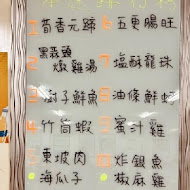 1 茴香元蹄
2 黑蒜頭
燉雞湯
3 廚子鮮魚
4 竹筒蝦
5 東坡肉
海瓜子
6 五更腸旺
7 塩酥龍珠
8 油條鮮蚵
蜜汁雞
炸銀魚
椒麻雞